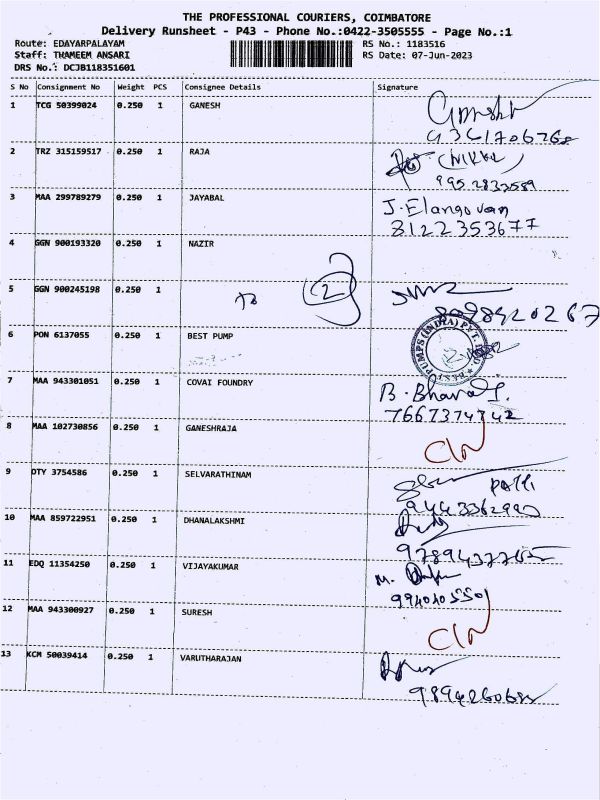 THE PROFESSIONAL COURIERS, COIMBATORE
Delivery Runsheet - P43 - Phone No.:0422-3505555 - Page No.:1
Route: EDAYARPALAYAM RS No.: 1183516
Staff: THAMEEM ANSARI RS Date: 07-Jun-2023
DRS No.: DCJB118351601
S No Consignment No Weight PCS Consignee Details Signature
1 TCG 50399024 0.250 1 GANESH
2 TRZ 315159517 0.250 1 RAJA
3 MAA 299789279 0.250 1 JAYABAL J. Elangovan
8122353677
4 GGN 900193320 0.250 1 NAZIR
5 GGN 900245198 0.250 1 2
6 PON 6137055 0.250 1 BEST PUMP PUMPS (INDIA) PVT.
7 MAA 943301051 0.250 1 COVAI FOUNDRY
7667374742
8 MAA 102730856 0.250 1 GANESHRAJA
9 DTY 3754586 0.250 1 SELVARATHINAM
10 MAA 859722951 0.250 1 DHANALAKSHMI
11 EDQ 11354250 0.250 1 VIJAYAKUMAR
12 MAA 943300927 0.250 1 SURESH
13 KCM 50039414 0.250 1 VARUTHARAJAN